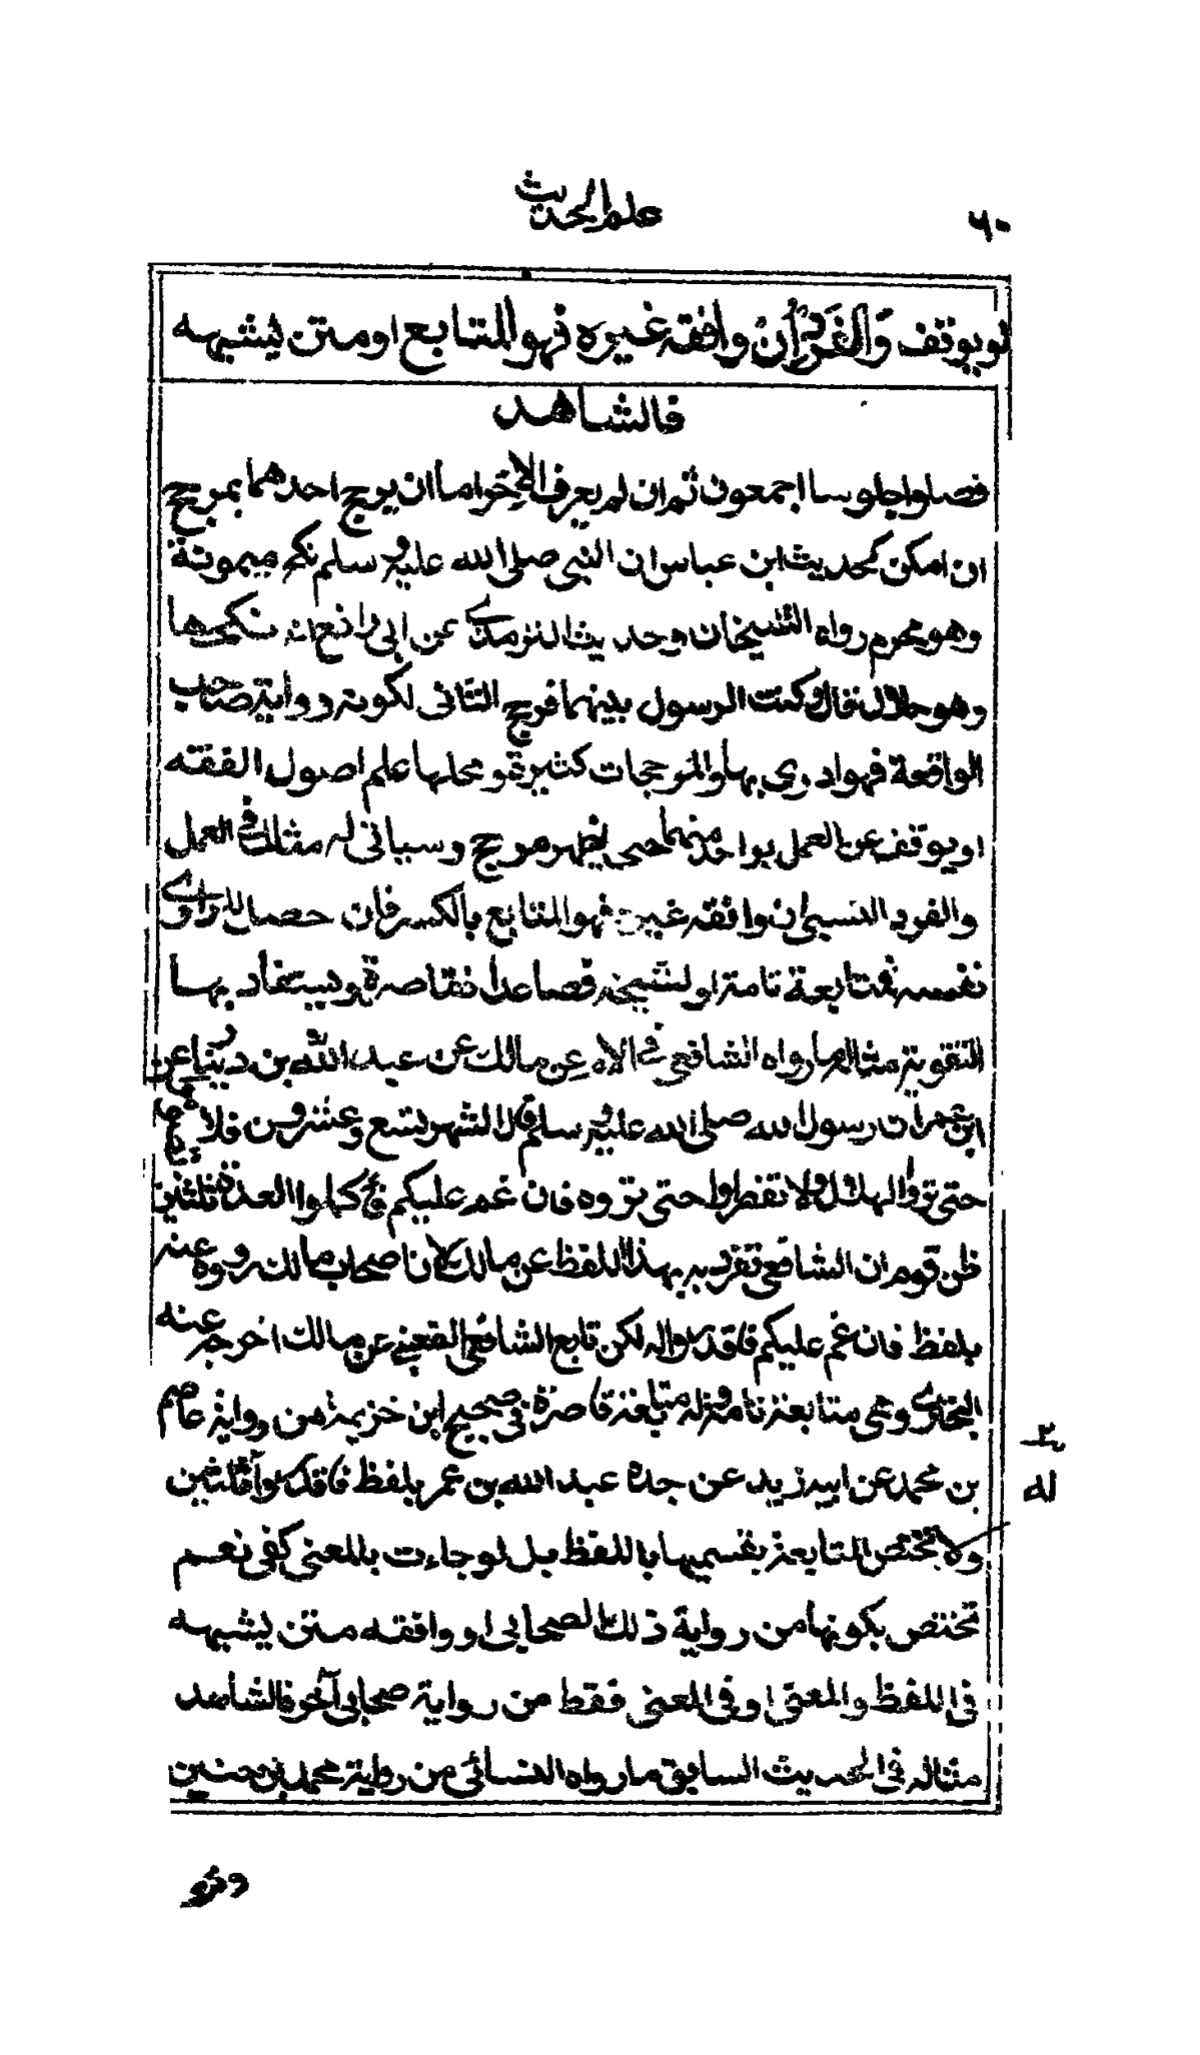 ٦٠
علم الحديث
او يوقف والفرد ان وافقه غيره فهو المتابع او متن يشبهه
فالشاهد
فصلوا جلوسا اجمعون ثم ان لم يعرف الاخر اما ان يرجح احدهما بمرجح
ان امكن كحديث ابن عباس ان النبي صلى الله عليه وسلم نكح ميمونة
وهو محرم رواه الشيخان وحديث الترمذي عن ابى رافع انه نكحها
وهو حلال قال وكنت الرسول بينهما فرجح الثانى لكونه رواية صاحب
الواقعة فهو ادرى بها والمرجحات كثيرة ومحلها علم اصول الفقه
او يوقف عن العمل بواحد منهما حتى يظهر مرجح وسياتى له مثال فى العمل
والفرد النسبى ان وافقه غيره فهو المتابع بالكسر فان حصل للراوى
نفسه فمتابعة تامة او لشيخه فصاعدا فقاصرة ويستفاد بها
التقوية مثاله ما رواه الشافعى فى الام عن مالك عن عبد الله بن دينار عن
ابن عمر ان رسول الله صلى الله عليه وسلم قال الشهر تسع وعشرون فلا تصوموا
حتى تروا الهلال ولا تفطروا حتى تروه فان غم عليكم فاكملوا العدة ثلثين
ظن قوم ان الشافعى تفرد به بهذا اللفظ عن مالك لان اصحاب مالك رووه عنه
بلفظ فان غم عليكم فاقدروا له لكن تابع الشافعى القعنبى عن مالك اخرجه عنه
البخارى وهى متابعة تامة وله متابعة قاصرة فى صحيح ابن خزيمة من رواية عاصم
بن محمد عن ابيه زيد عن جده عبد الله بن عمر بلفظ فاقدروا ثلثين
٢
له
ولا تختص المتابعة بقسميها باللفظ بل لو جاءت بالمعنى كفى نعم
تختص بكونها من رواية ذلك الصحابى او وافقه متن يشبهه
فى اللفظ والمعنى او فى المعنى فقط من رواية صحابى آخر فالشاهد
مثاله فى الحديث السابق ما رواه النسائى من رواية محمد بن حنين